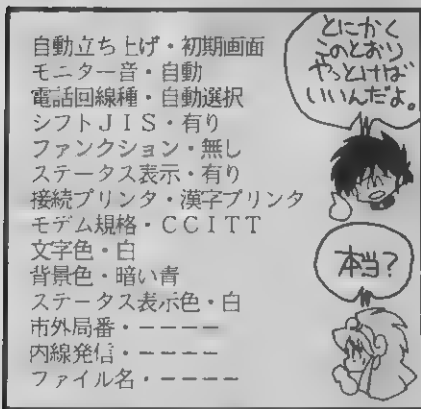 自動立ち上げ・初期画面
モニター音・自動
電話回線種・自動選択
シフトＪＩＳ・有り
ファンクション・無し
ステータス表示・有り
接続プリンタ・漢字プリンタ
モデム規格・ＣＣＩＴＴ
文字色・白
背景色・暗い青
ステータス表示色・白
市外局番・－－－－
内線発信・－－－－
ファイル名・－－－－
とにかく
このとおり
やっとけば
いいんだよ。
本当？